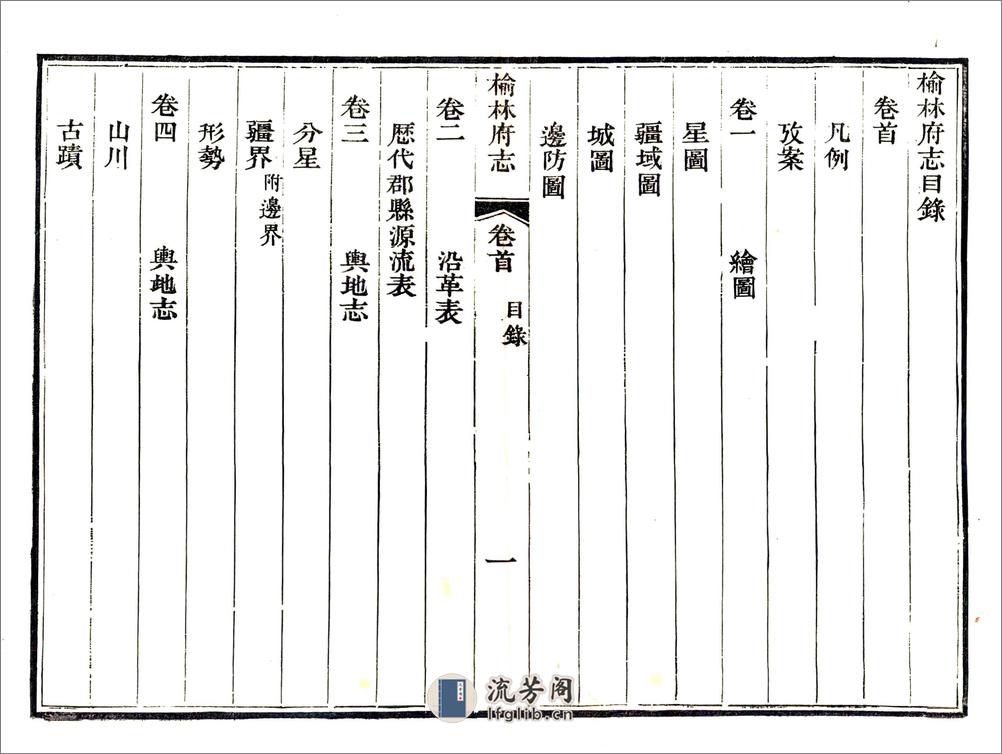 榆林府志目錄
卷首
凡例
攷案
卷一 繪圖
星圖
疆域圖
城圖
邊防圖
榆林府志 卷首 目錄 一
卷二 沿革表
歷代郡縣源流表
卷三 輿地志
分星
疆界 附邊界
形勢
卷四 輿地志
山川
古蹟
流芳阁
lfglib.cn